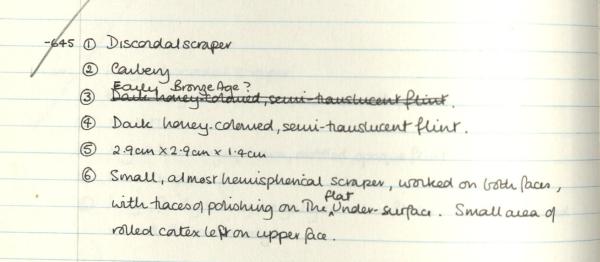 -645 ① Discordal scraper
② Carbery
Early Bronze Age?
③ Dark honey-coloured, semi-translucent flint.
④ Dark honey-coloured, semi-translucent flint.
⑤ 2.9cm × 2.9cm × 1.4cm
⑥ Small, almost hemispherical scraper, worked on both faces,
with traces of polishing on the flat under-surface. Small area of
rolled cortex left on upper face.